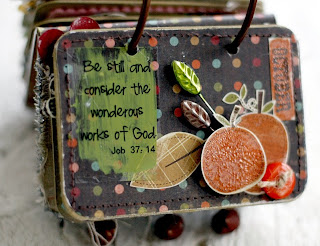 Be still and
consider the
wonderous
works of God.
Job 37: 14